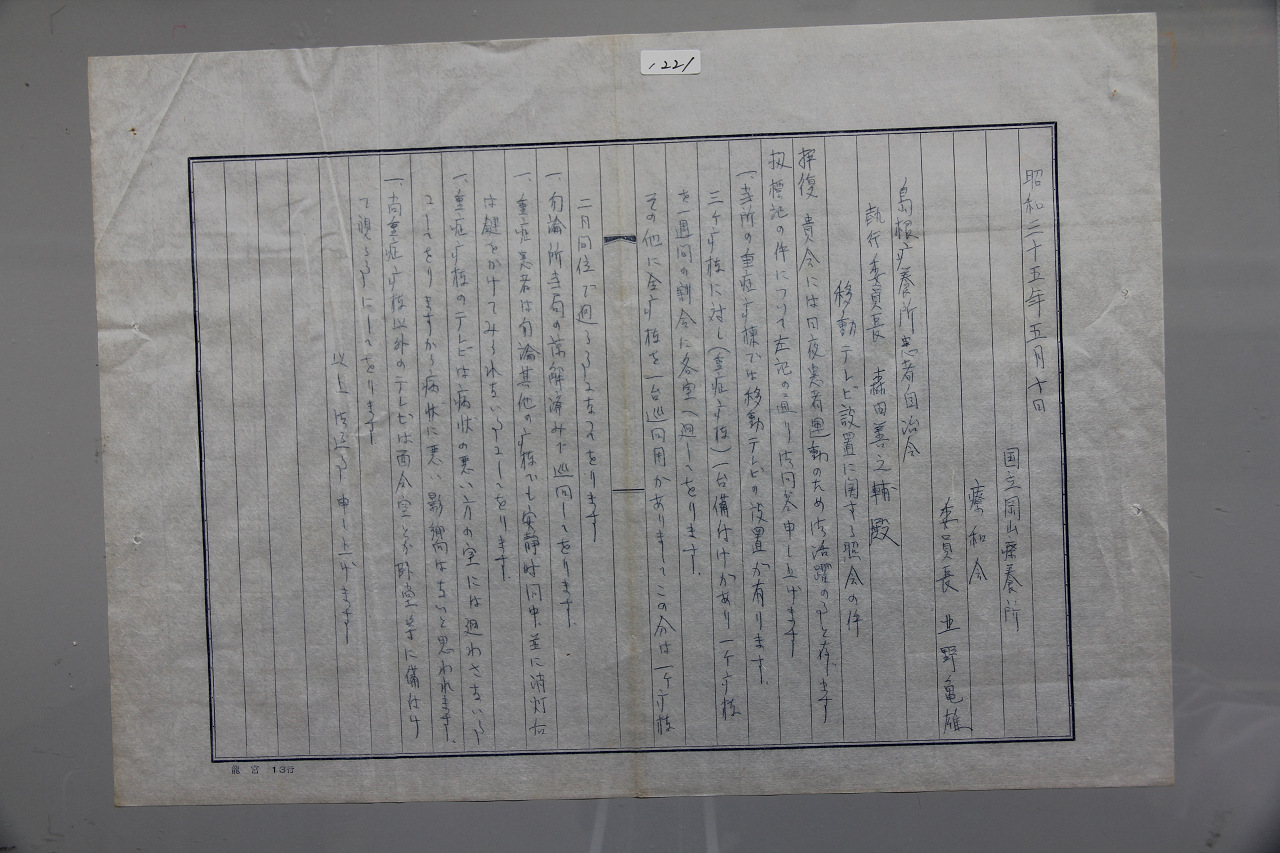 1221
昭和三十五年五月十日
国立岡山療養所
療和会
委員長 上野亀雄
島根療養所患者自治会
執行委員長 森田善之輔殿
移動テレビ設置に関する照会の件
拝復 貴会には日夜患者運動のため御活躍の事と存じます
扨標記の件について左記の通り御回答申し上げます
一、当所の重症病棟では移動テレビの設置が有ります。
三ヶ病棟に対し(重症病棟)一台備付けがあり一ヶ病棟
を一週間の割合に各室へ廻してをります。
その他に全病棟を一台巡回用がありましてこの分は一ヶ病棟
二月間位で廻る事になつてをります
一、勿論所当局の諒解済みで巡回してをります。
一、重症患者は勿論其他の病棟でも安静時間中、並に消灯后
は鍵をかけてみられない事にしてをります。
一、重症病棟のテレビは病状の悪い方の室には廻わさない事
にしてをりますから病状に悪い影響はないと思われます。
一、尚重症病棟以外のテレビは面会室とか 等に備付け
て視る事にしてをります
以上 御返事申し上げます
龍宮 13行